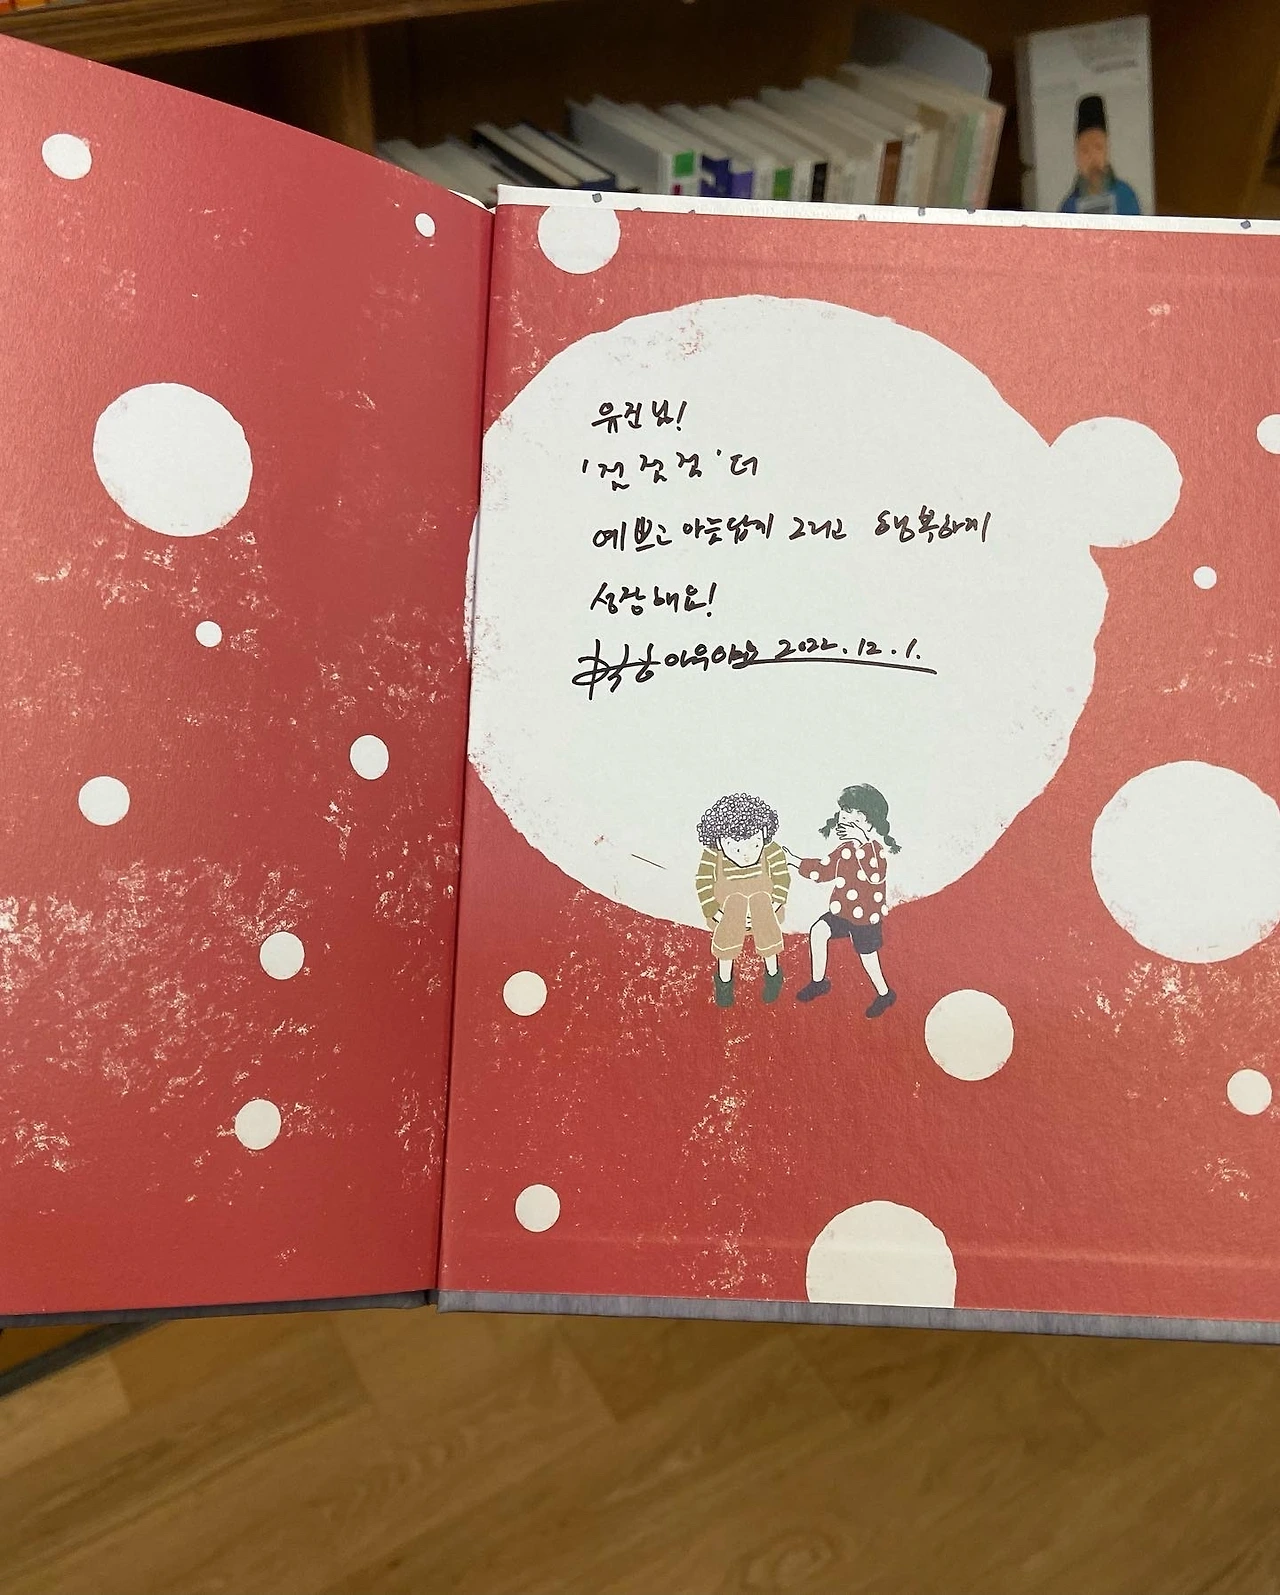 유진님!
'점점점' 더
예쁘고 아름답게 그리고 행복하게
성장해요!
2022.12.1.